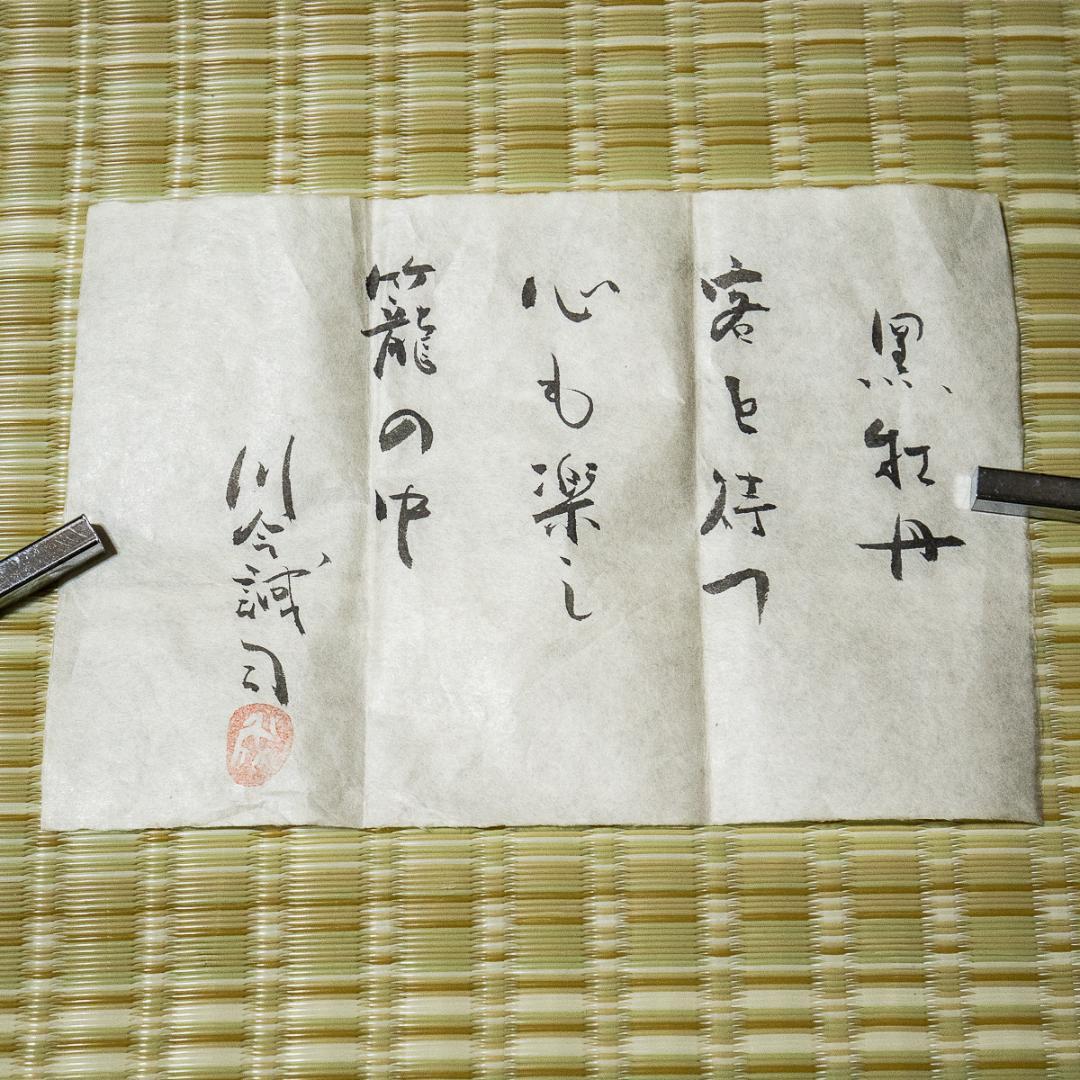 黒牡丹
客と待つ
心も楽し
籠の中
川合誠司